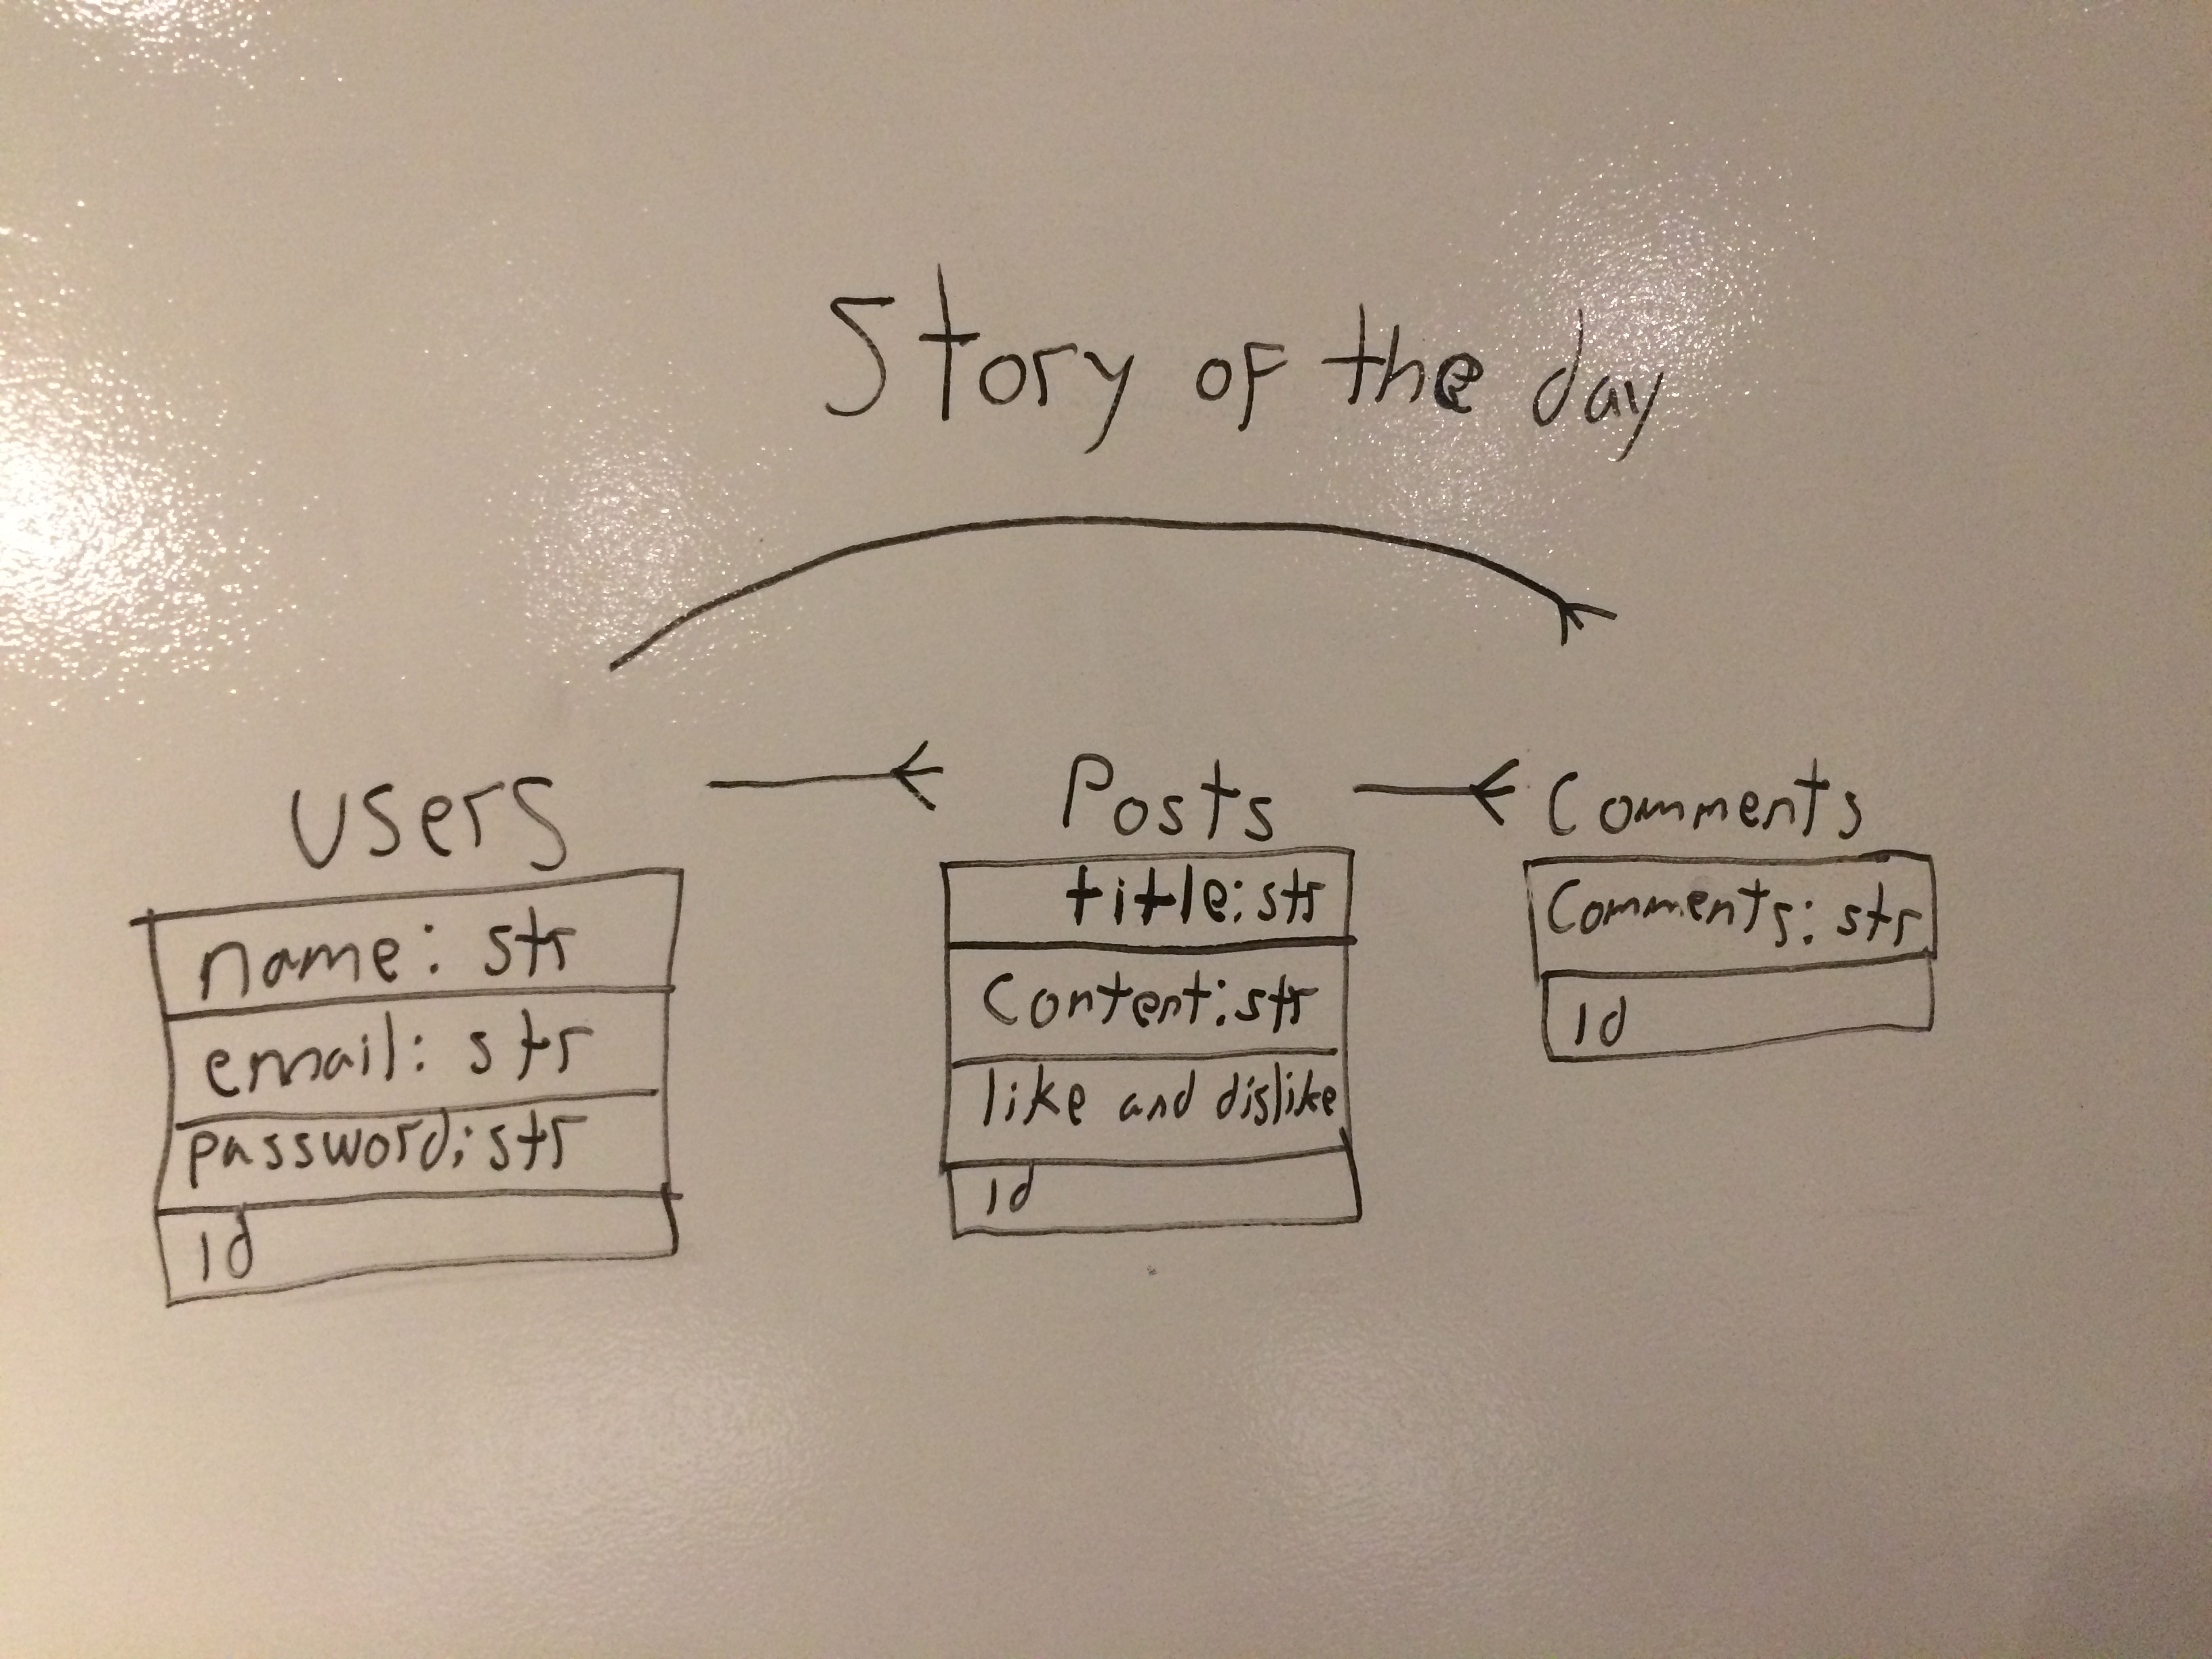 Story of the day
users
name: str
email: str
password: str
id
Posts
title: str
Content: str
like and dislike
id
Comments
Comments: str
id